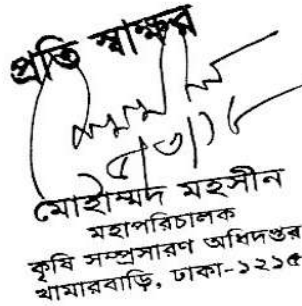 প্রতি স্বাক্ষর
মোহাম্মদ মহসীন
মহাপরিচালক
কৃষি সম্প্রসারণ অধিদপ্তর
খামারবাড়ি, ঢাকা-১২১৫